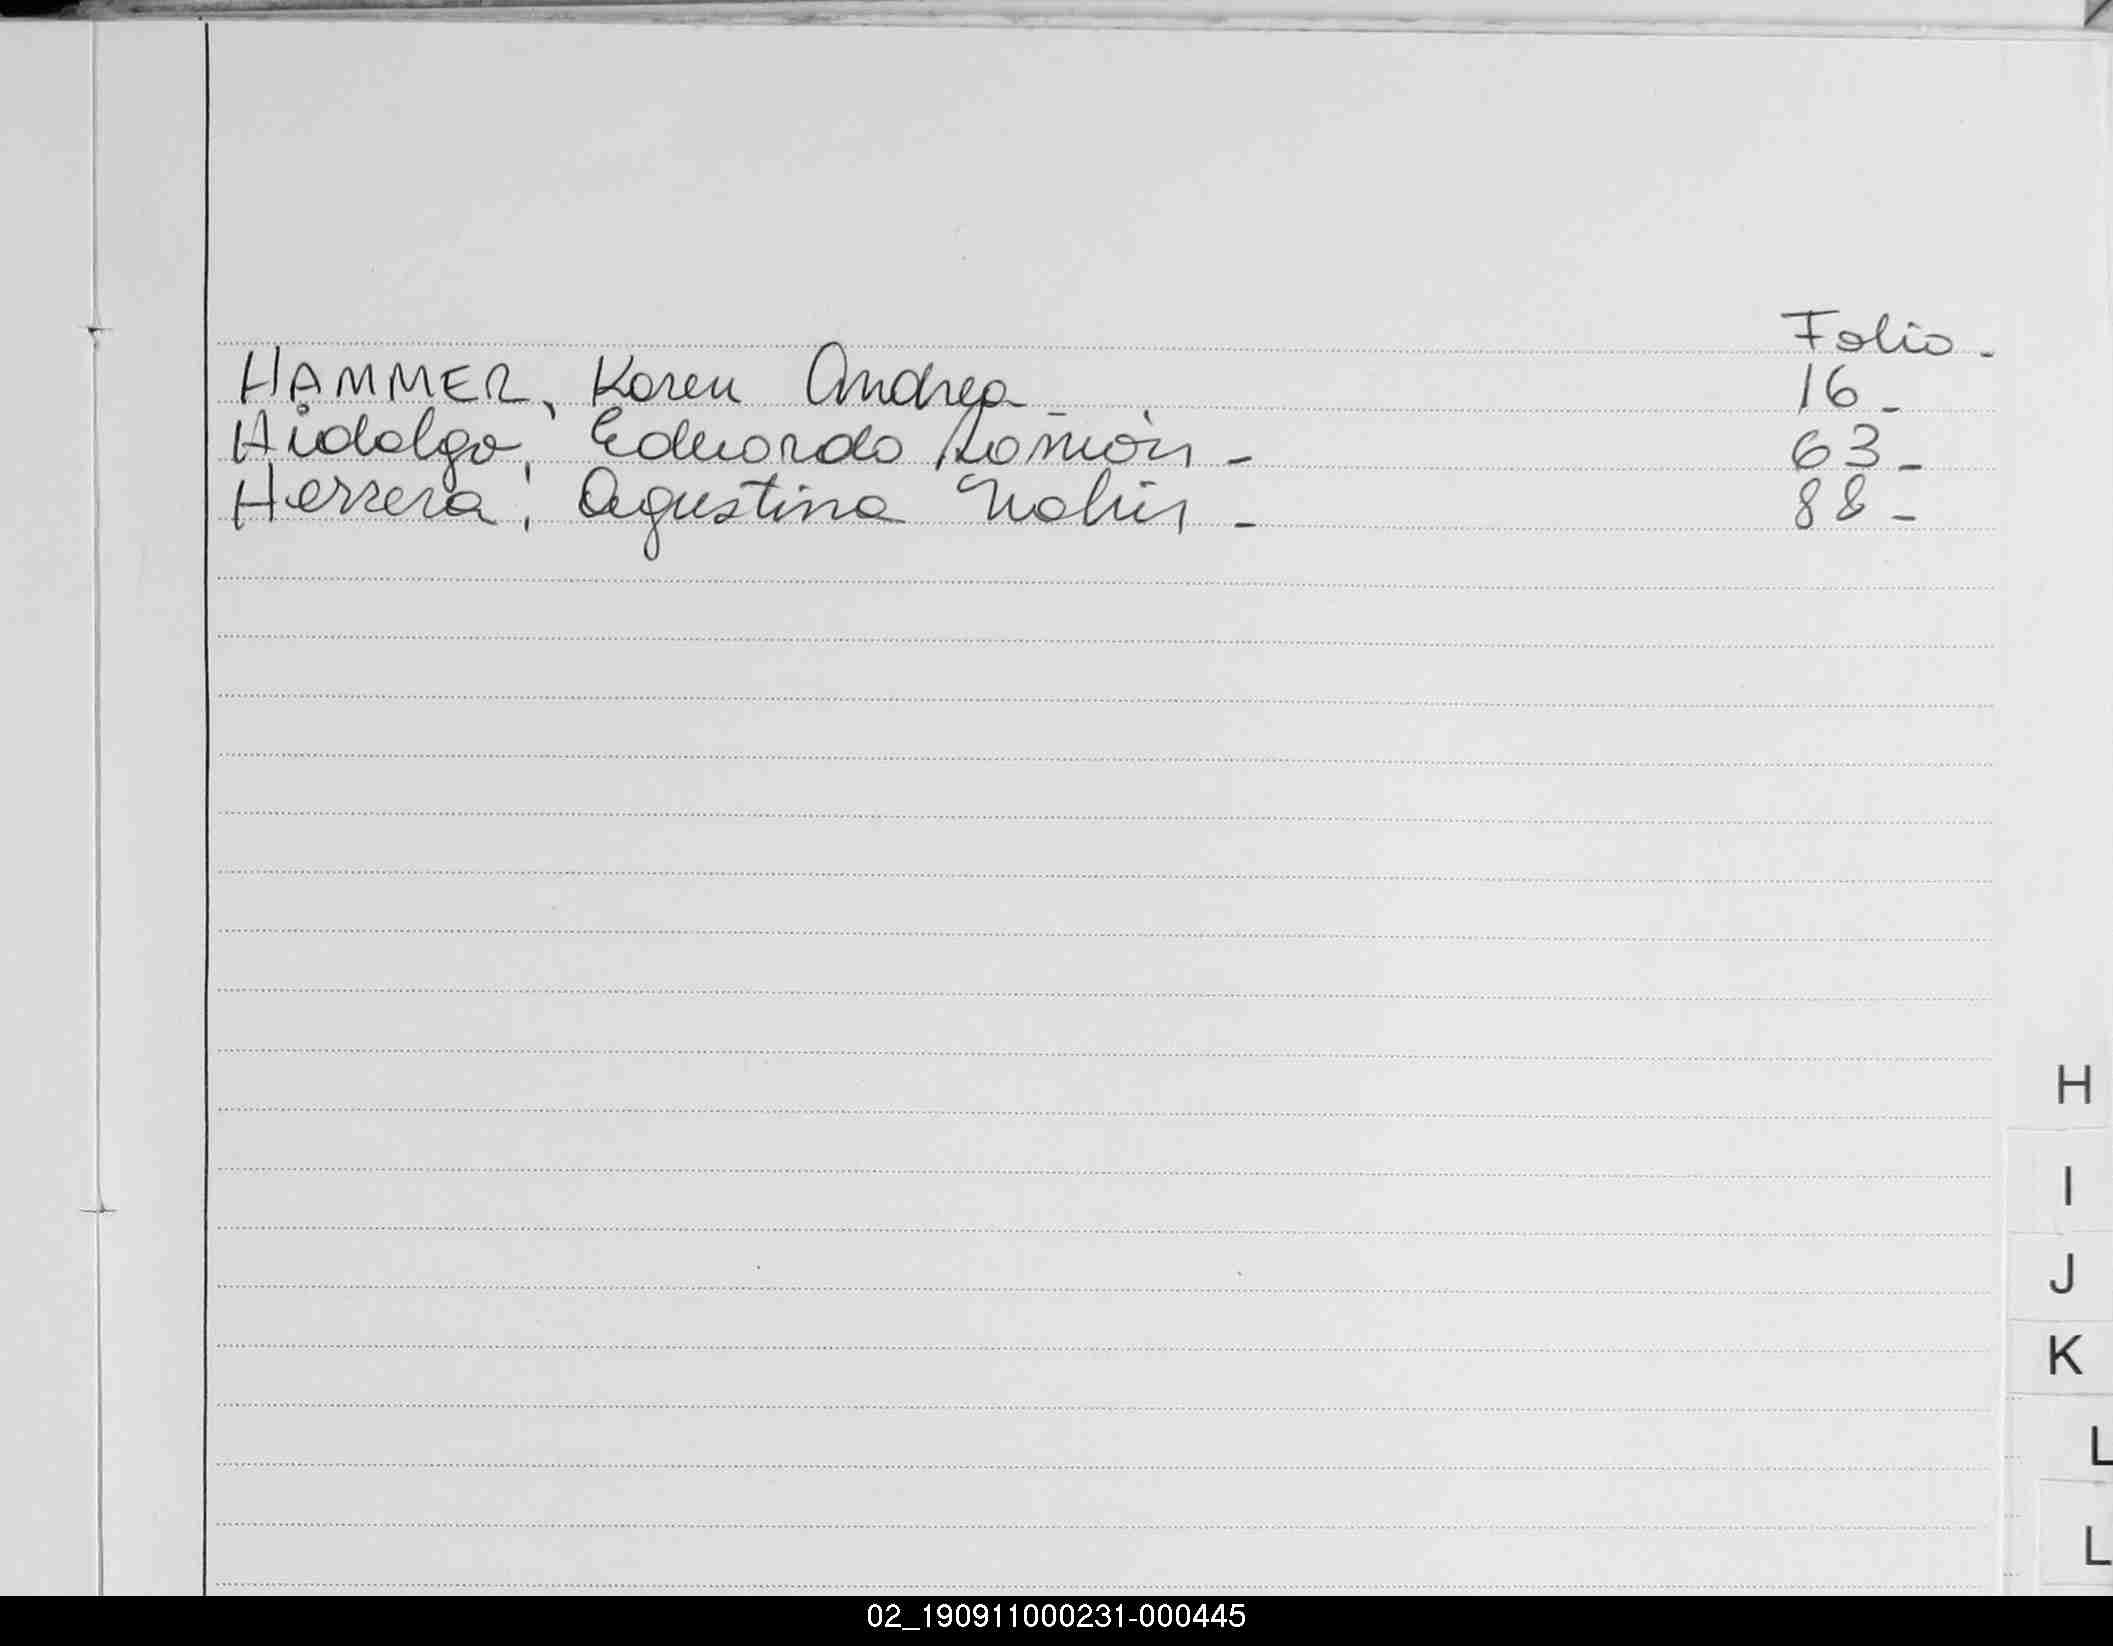 Folio -
HAMMER, Karen Andrea - 16 -
Hidalgo, Eduardo Ramón - 63 -
Herrera, Agustina Nahir - 88 -
H
I
J
K
L
L
02_190911000231-000445